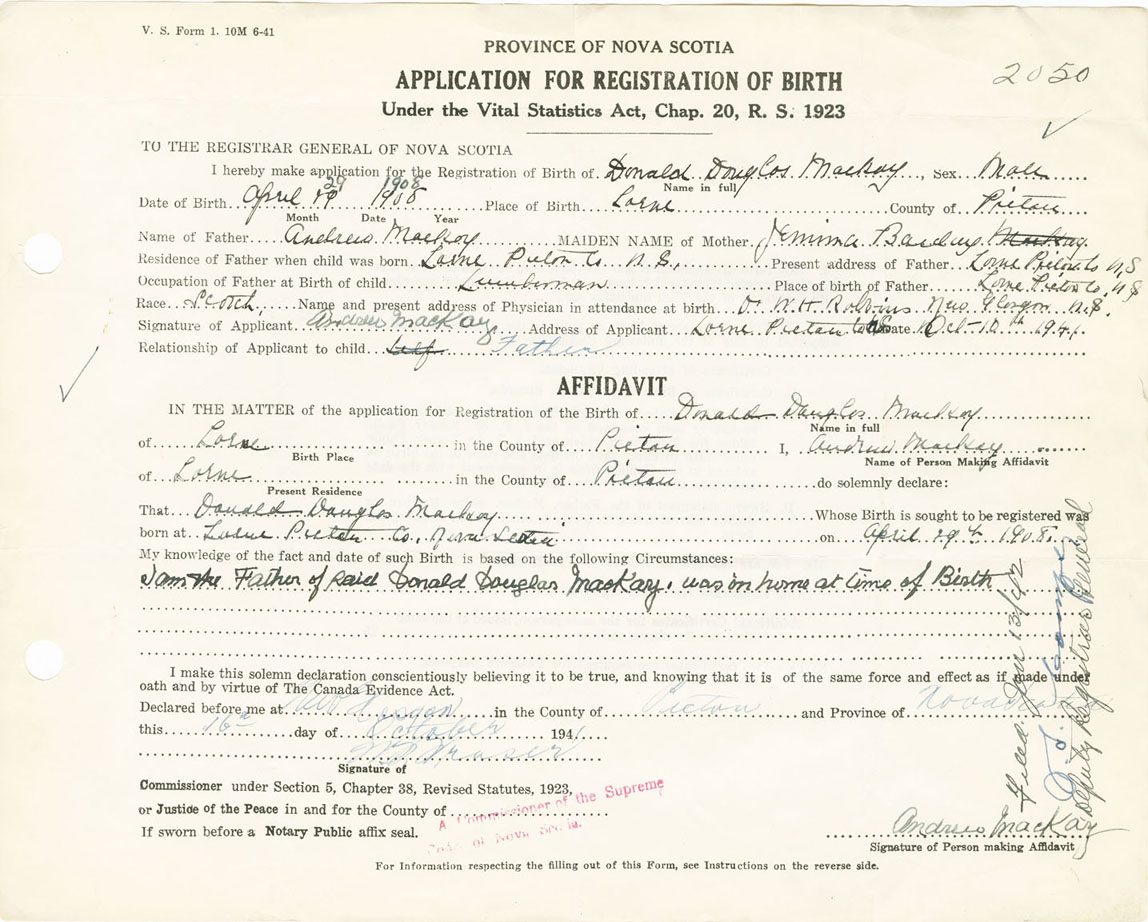 V. S. Form 1. 10M 6-41
PROVINCE OF NOVA SCOTIA
2050
APPLICATION FOR REGISTRATION OF BIRTH
Under the Vital Statistics Act, Chap. 20, R. S. 1923
TO THE REGISTRAR GENERAL OF NOVA SCOTIA
I hereby make application for the Registration of Birth of Donald Douglas MacKay, Sex Male
Name in full
29 1908
Date of Birth April 29 1908 Place of Birth Lorne County of Pictou
Month Date Year
Name of Father Andrew MacKay MAIDEN NAME of Mother Jemima MacKay
Residence of Father when child was born Lorne Pictou Co N.S., Present address of Father Lorne Pictou Co N S
Occupation of Father at Birth of child Lumberman Place of birth of Father Lorne Pictou Co. N S
Race Scotch, Name and present address of Physician in attendance at birth Dr W. H. Robbins New Glasgow N.S.
Signature of Applicant Andrew MacKay Address of Applicant Lorne Pictou Co NS Date Oct-10th 1941
Relationship of Applicant to child Self Father
AFFIDAVIT
IN THE MATTER of the application for Registration of the Birth of Donald Douglas MacKay
Name in full
of Lorne in the County of Pictou I, Andrew MacKay
Birth Place Name of Person Making Affidavit
of Lorne in the County of Pictou do solemnly declare:
Present Residence
That Donald Douglas MacKay Whose Birth is sought to be registered was
born at Lorne Pictou Co., Nova Scotia on April 29th 1908.
My knowledge of the fact and date of such Birth is based on the following Circumstances:
I am the Father of said Donald Douglas MacKay, was on home at time of Birth
I make this solemn declaration conscientiously believing it to be true, and knowing that it is of the same force and effect as if made under
oath and by virtue of The Canada Evidence Act.
Declared before me at New Glasgow in the County of Pictou and Province of Nova Scotia
this 16th day of October 1941
Fraser
Signature of
Commissioner under Section 5, Chapter 38, Revised Statutes, 1923,
or Justice of the Peace in and for the County of
A Commissioner of the Supreme
Court of Nova Scotia.
If sworn before a Notary Public affix seal.
Andrew MacKay
Signature of Person making Affidavit
For Information respecting the filling out of this Form, see Instructions on the reverse side.
Filed Jan 13/42
Deputy Registrar General